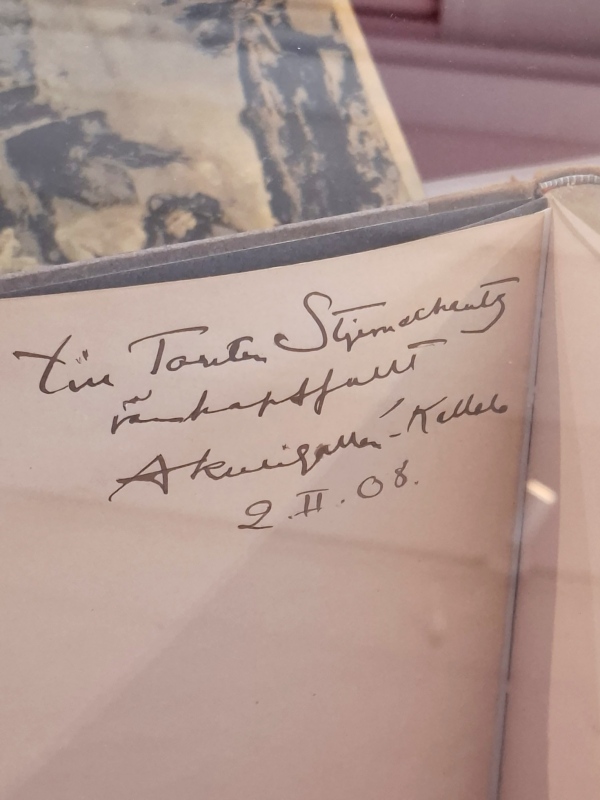 Till Torsten Stjernschantz
vänskapsfullt
Akseli Gallén-Kallela
2.II.08.